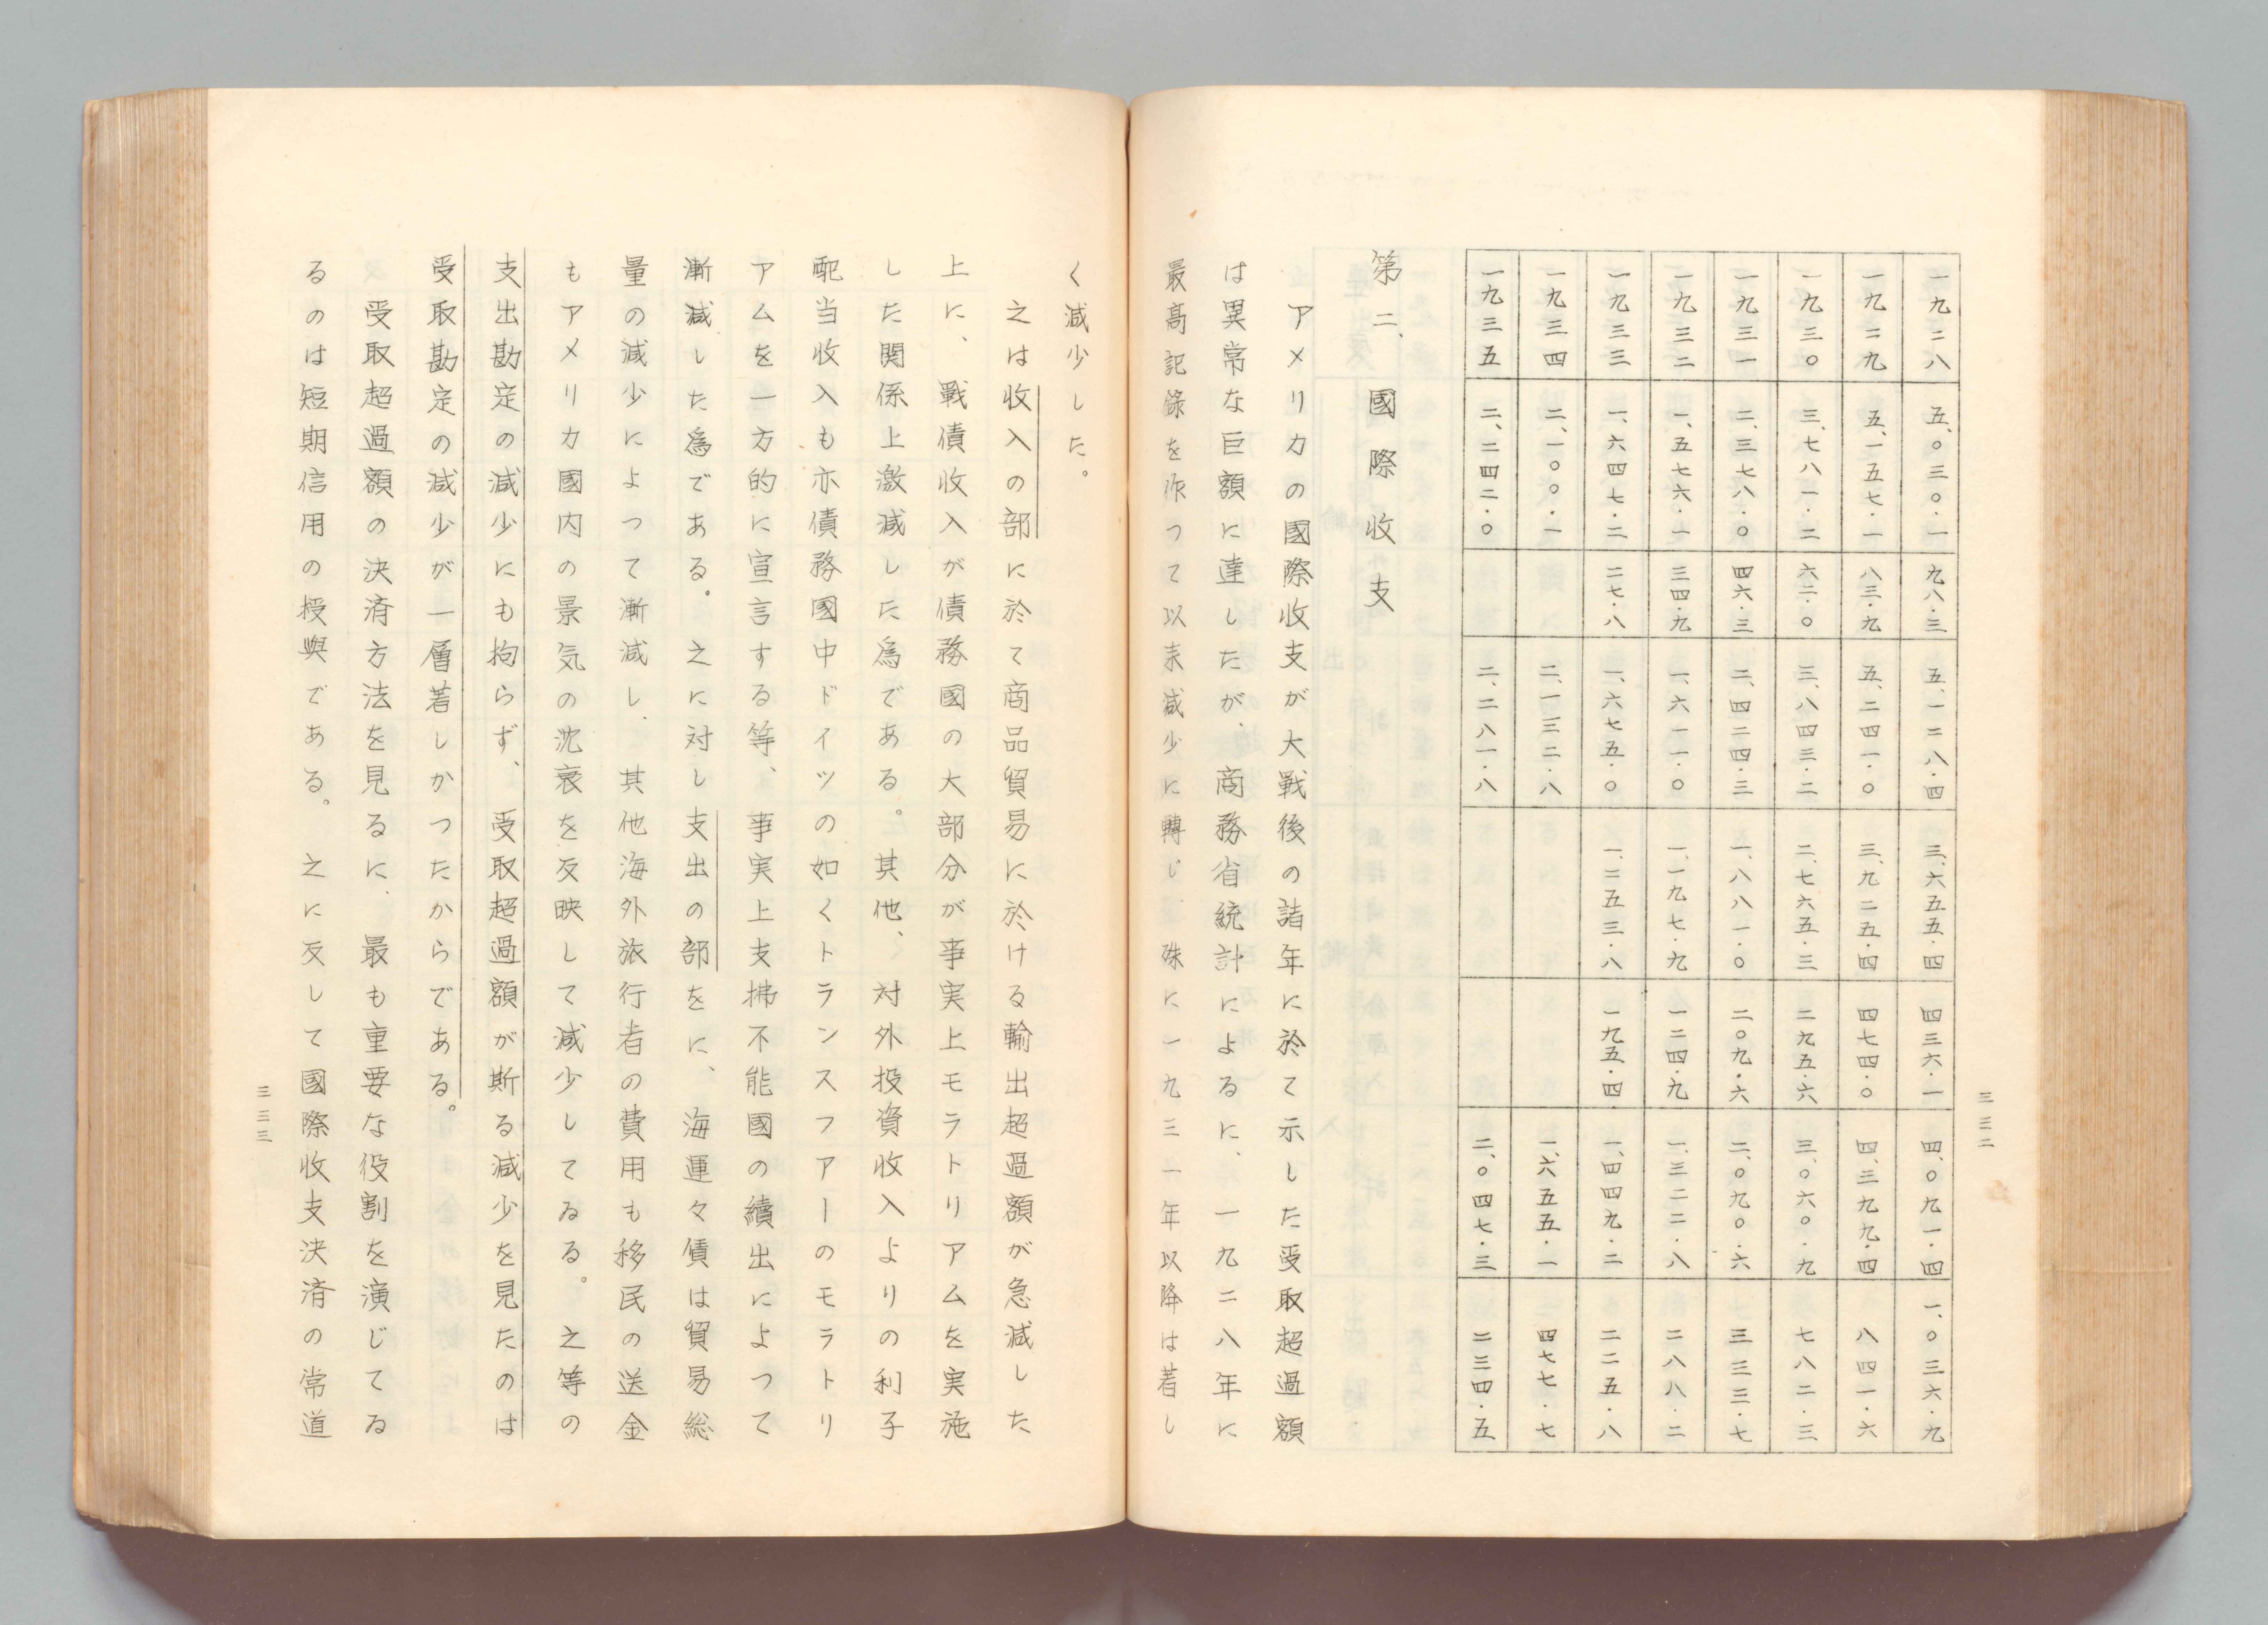 一九二八 五、〇三〇・一 九八・三 五、一二八・四 三、六五五・四 四三六・一 四、〇九一・四 一、〇三六・九
一九二九 五、一五七・一 八三・九 五、二四一・〇 三、九二五・四 四七四・〇 四、三九九・四 八四一・六
一九三〇 三、七八一・二 六二・〇 三、八四三・二 二、七六五・三 二九五・六 三、〇六〇・九 七八二・三
一九三一 二、三七八・〇 四六・三 二、四二四・三 一、八八一・〇 二〇九・六 二、〇九〇・六 三三三・七
一九三二 一、五七六・一 三四・九 一、六一一・〇 一、一九七・九 一二四・九 一、三二二・八 二八八・二
一九三三 一、六四七・二 二七・八 一、六七五・〇 一、二五三・八 一九五・四 一、四四九・二 二二五・八
一九三四 二、一〇〇・一 二、一三二・八 一、六五五・一 四七七・七
一九三五 二、二四二・〇 二、二八一・八 二、〇四七・三 二三四・五
第二、國際收支
アメリカの國際收支が大戰後の諸年に於て示した受取超過額
は異常な巨額に達したが、商務省統計によるに、一九二八年に
最高記錄を作つて以来減少に轉じ 殊に一九三一年以降は若し
三三二
く減少した。
之は收入の部に於て商品貿易に於ける輸出超過額が急減した
上に、戰債收入が債務國の大部分が事実上モラトリアムを実施
した関係上激減した爲である。其他、対外投資收入よりの利子
配当收入も亦債務國中ドイツの如くトランスファーのモラトリ
アムを一方的に宣言する等、事実上支拂不能國の續出によつて
漸減した爲である。之に対し支出の部をに、海運々債は貿易総
量の減少によつて漸減し、其他海外旅行者の費用も移民の送金
もアメリカ國内の景気の沈衰を反映して減少してゐる。之等の
支出勘定の減少にも拘らず、受取超過額が斯る減少を見たのは
受取勘定の減少が一層若しかつたからである。
受取超過額の決済方法を見るに、最も重要な役割を演じてゐ
るのは短期信用の授與である。之に反して國際收支決済の常道
三三三